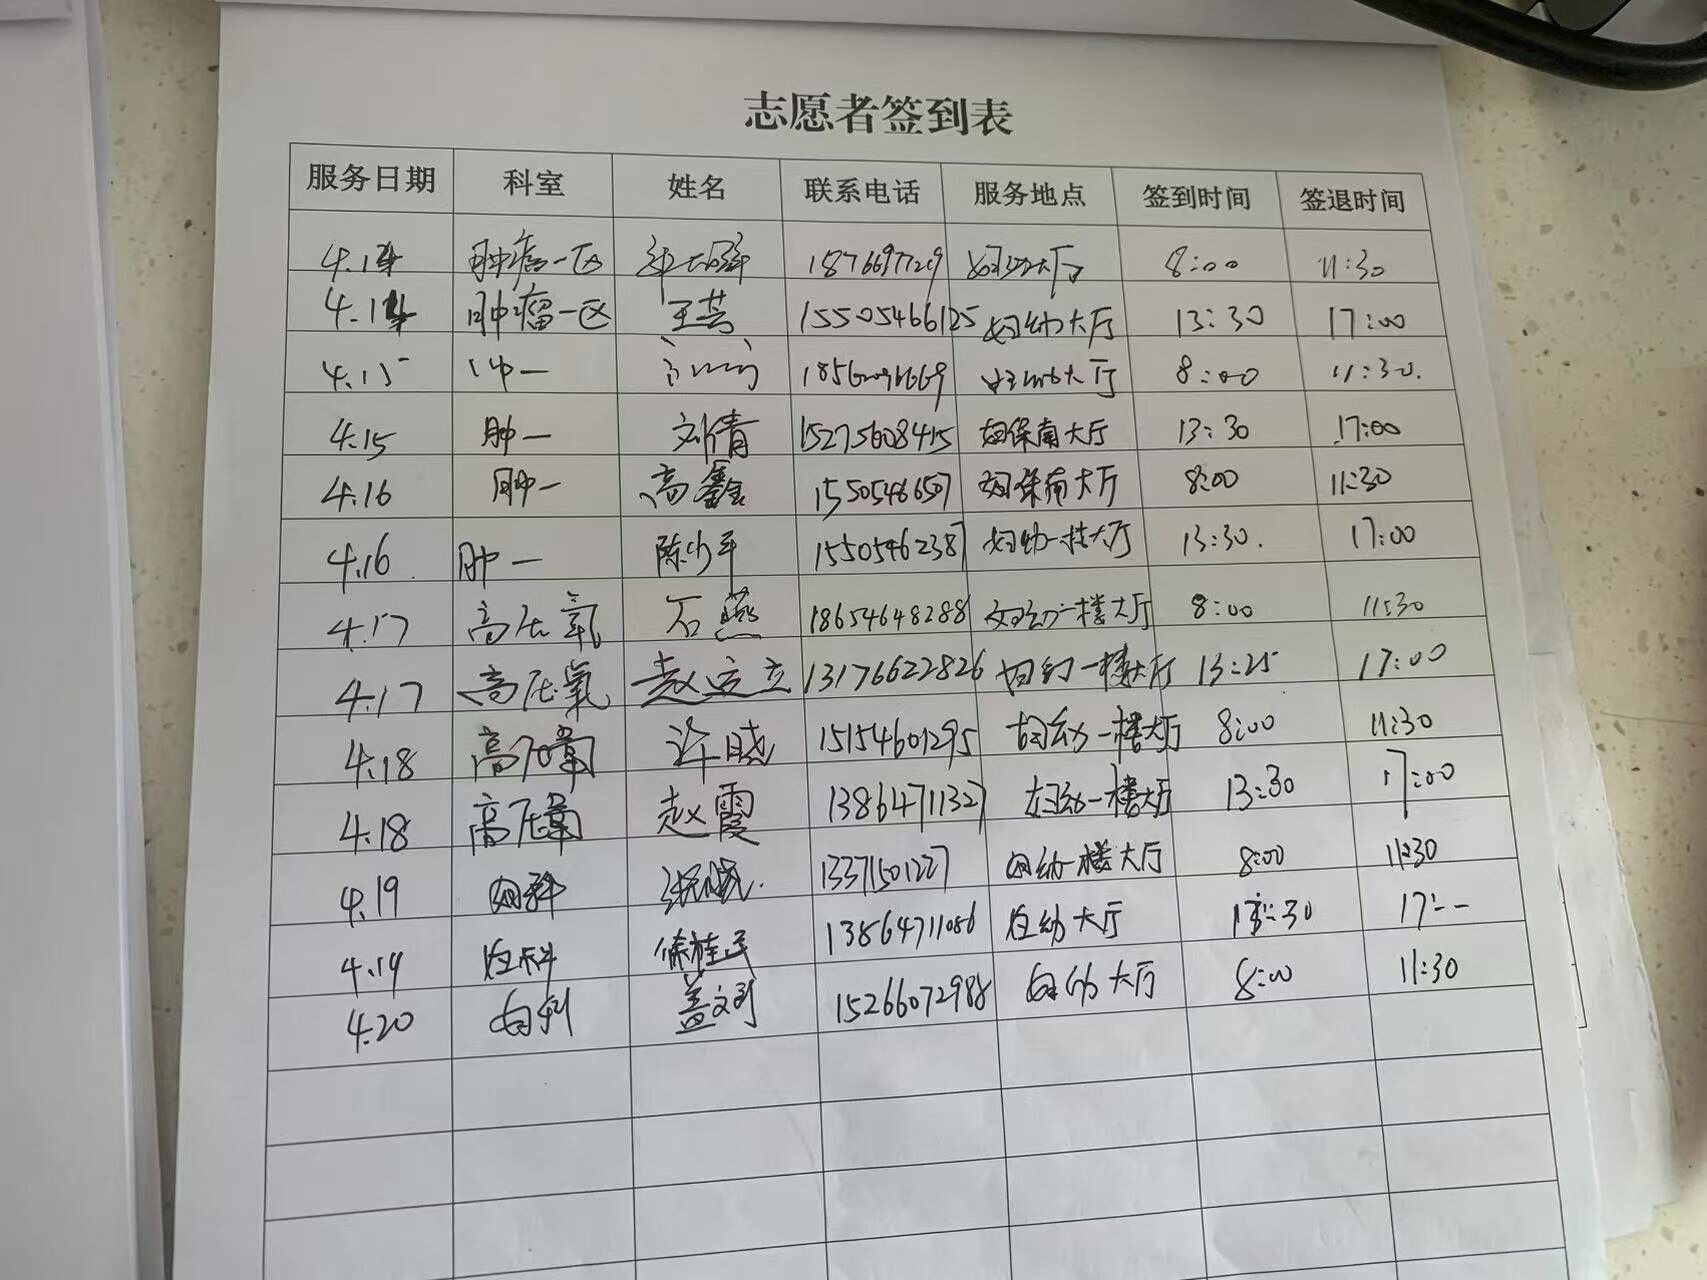 志愿者签到表
服务日期 科室 姓名 联系电话 服务地点 签到时间 签退时间
4.14 肿瘤一区 18766977209 妇幼大厅 8:00 11:30
4.14 肿瘤一区 王芸 15505466125 妇幼大厅 13:30 17:00
4.15 肿一 大厅 8:00 11:30.
4.15 肿一 刘倩 15275608415 妇保南大厅 13:30 17:00
4.16 肿一 高鑫 15505466507 妇保南大厅 8:00 11:30
4.16 肿一 陈少军 15505462387 妇幼一楼大厅 13:30. 17:00
4.17 高压氧 石燕 18654648288 妇幼一楼大厅 8:00 11:30
4.17 高压氧 赵立 13176622826 妇幼一楼大厅 13:25 17:00
4.18 高压氧 许晓 15154601295 妇幼一楼大厅 8:00 11:30
4.18 高压氧 赵霞 13864711327 妇幼一楼大厅 13:30 17:00
4.19 妇科 13371501227 妇幼一楼大厅 8:00 11:30
4.19 妇科 徐桂民 13864711086 妇幼大厅 13:30 17:--
4.20 妇科 盖文 15266072988 妇幼大厅 8:00 11:30